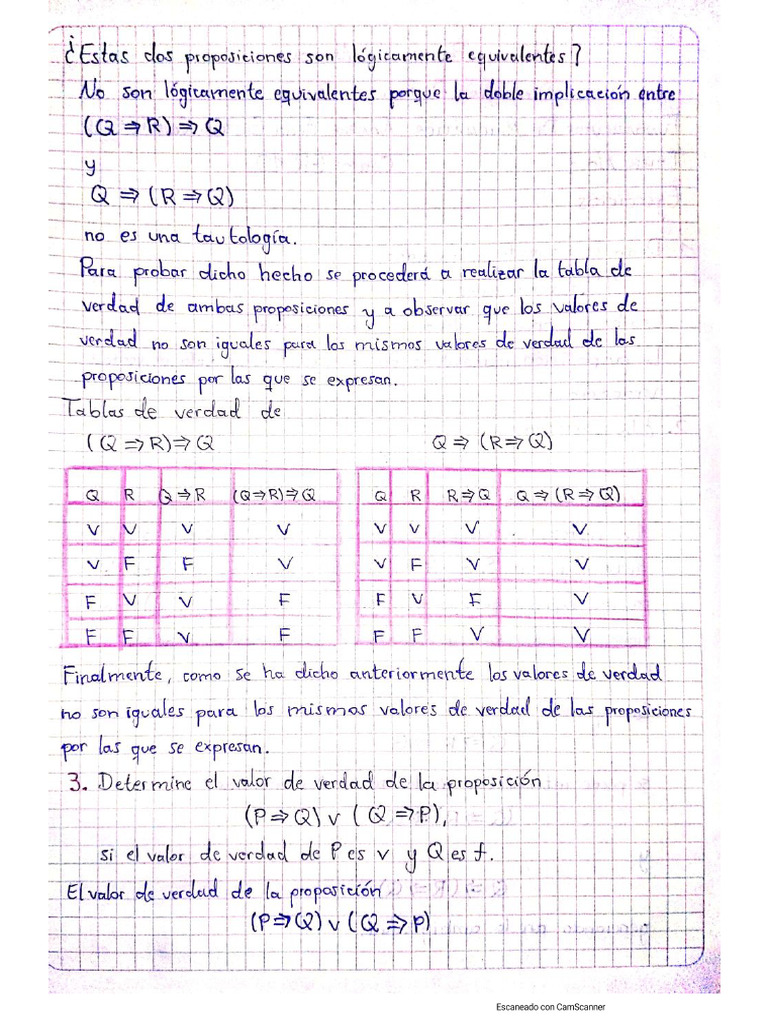 ¿Estas dos proposiciones son lógicamente equivalentes?
No son lógicamente equivalentes porque la doble implicación entre
(Q ⇒ R) ⇒ Q
y
Q ⇒ (R ⇒ Q)
no es una tautología.
Para probar dicho hecho se procederá a realizar la tabla de
verdad de ambas proposiciones y a observar que los valores de
verdad no son iguales para los mismos valores de verdad de las
proposiciones por las que se expresan.
Tablas de verdad de
(Q ⇒ R) ⇒ Q Q ⇒ (R ⇒ Q)
Q R Q ⇒ R (Q ⇒ R) ⇒ Q Q R R ⇒ Q Q ⇒ (R ⇒ Q)
V V V V V V V V
V F F V V F V V
F V V F F V F V
F F V F F F V V
Finalmente, como se ha dicho anteriormente los valores de verdad
no son iguales para los mismos valores de verdad de las proposiciones
por las que se expresan.
3. Determine el valor de verdad de la proposición
(P ⇒ Q) ∨ (Q ⇒ P),
si el valor de verdad de P es v y Q es f.
El valor de verdad de la proposición
(P ⇒ Q) ∨ (Q ⇒ P)
Escaneado con CamScanner